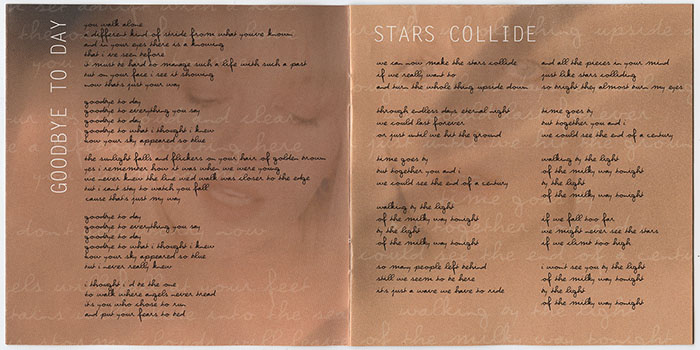 GOODBYE TO DAY
you walk alone
a different kind of stride from what you've known
and in your eyes there is a knowing
that i've seen before
it must be hard to manage such a life with such a past
but on your face i see it showing
now that's just your way
goodbye to day
goodbye to everything you say
goodbye to day
goodbye to what i thought i knew
how your sky appeared so blue
the sunlight falls and flickers on your hair of golden brown
yes i remember how it was when we were young
we never knew the line we'd walk was closer to the edge
but i can't stay to watch you fall
cause that's just my way
goodbye to day
goodbye to everything you say
goodbye to day
goodbye to what i thought i knew
how your sky appeared so blue
but i never really knew
i thought i'd be the one
to walk where angels never tread
it's you who chose to run
and put your fears to bed
STARS COLLIDE
we can now make the stars collide
if we really want to
and turn the whole thing upside down
through endless days eternal night
we could last forever
or just until we hit the ground
time goes by
but together you and i
we could see the end of a century
walking by the light
of the milky way tonight
by the light
of the milky way tonight
so many people left behind
still we seem to be here
it's just a wave we have to ride
and all the pieces in your mind
just like stars colliding
so bright they almost burn my eyes
time goes by
but together you and i
we could see the end of a century
walking by the light
of the milky way tonight
by the light
of the milky way tonight
if we fall too far
we might never see the stars
if we climb too high
i won't see you by the light
of the milky way tonight
by the light
of the milky way tonight